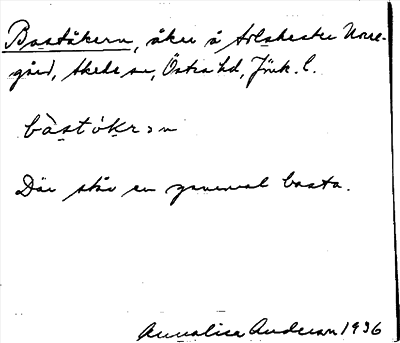 Baståkern, åker å Norre-
gård, Skede sn, Östra hd, Jönk. l.
bàstòkr ɔn
Där står en gammal basta.
Annalisa Anderson 1936